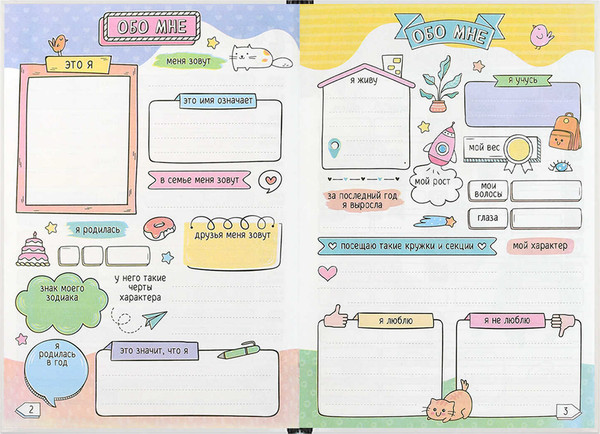 ОБО МНЕ
ЭТО Я
МЕНЯ ЗОВУТ
ЭТО ИМЯ ОЗНАЧАЕТ
В СЕМЬЕ МЕНЯ ЗОВУТ
Я РОДИЛАСЬ
ДРУЗЬЯ МЕНЯ ЗОВУТ
ЗНАК МОЕГО
ЗОДИАКА
У НЕГО ТАКИЕ
ЧЕРТЫ
ХАРАКТЕРА
Я
РОДИЛАСЬ
В ГОД
ЭТО ЗНАЧИТ, ЧТО Я
2
ОБО МНЕ
Я ЖИВУ
Я УЧУСЬ
МОЙ ВЕС
МОЙ РОСТ
ЗА ПОСЛЕДНИЙ ГОД
Я ВЫРОСЛА
МОИ
ВОЛОСЫ
ГЛАЗА
ПОСЕЩАЮ ТАКИЕ КРУЖКИ И СЕКЦИИ
МОЙ ХАРАКТЕР
Я ЛЮБЛЮ
Я НЕ ЛЮБЛЮ
3